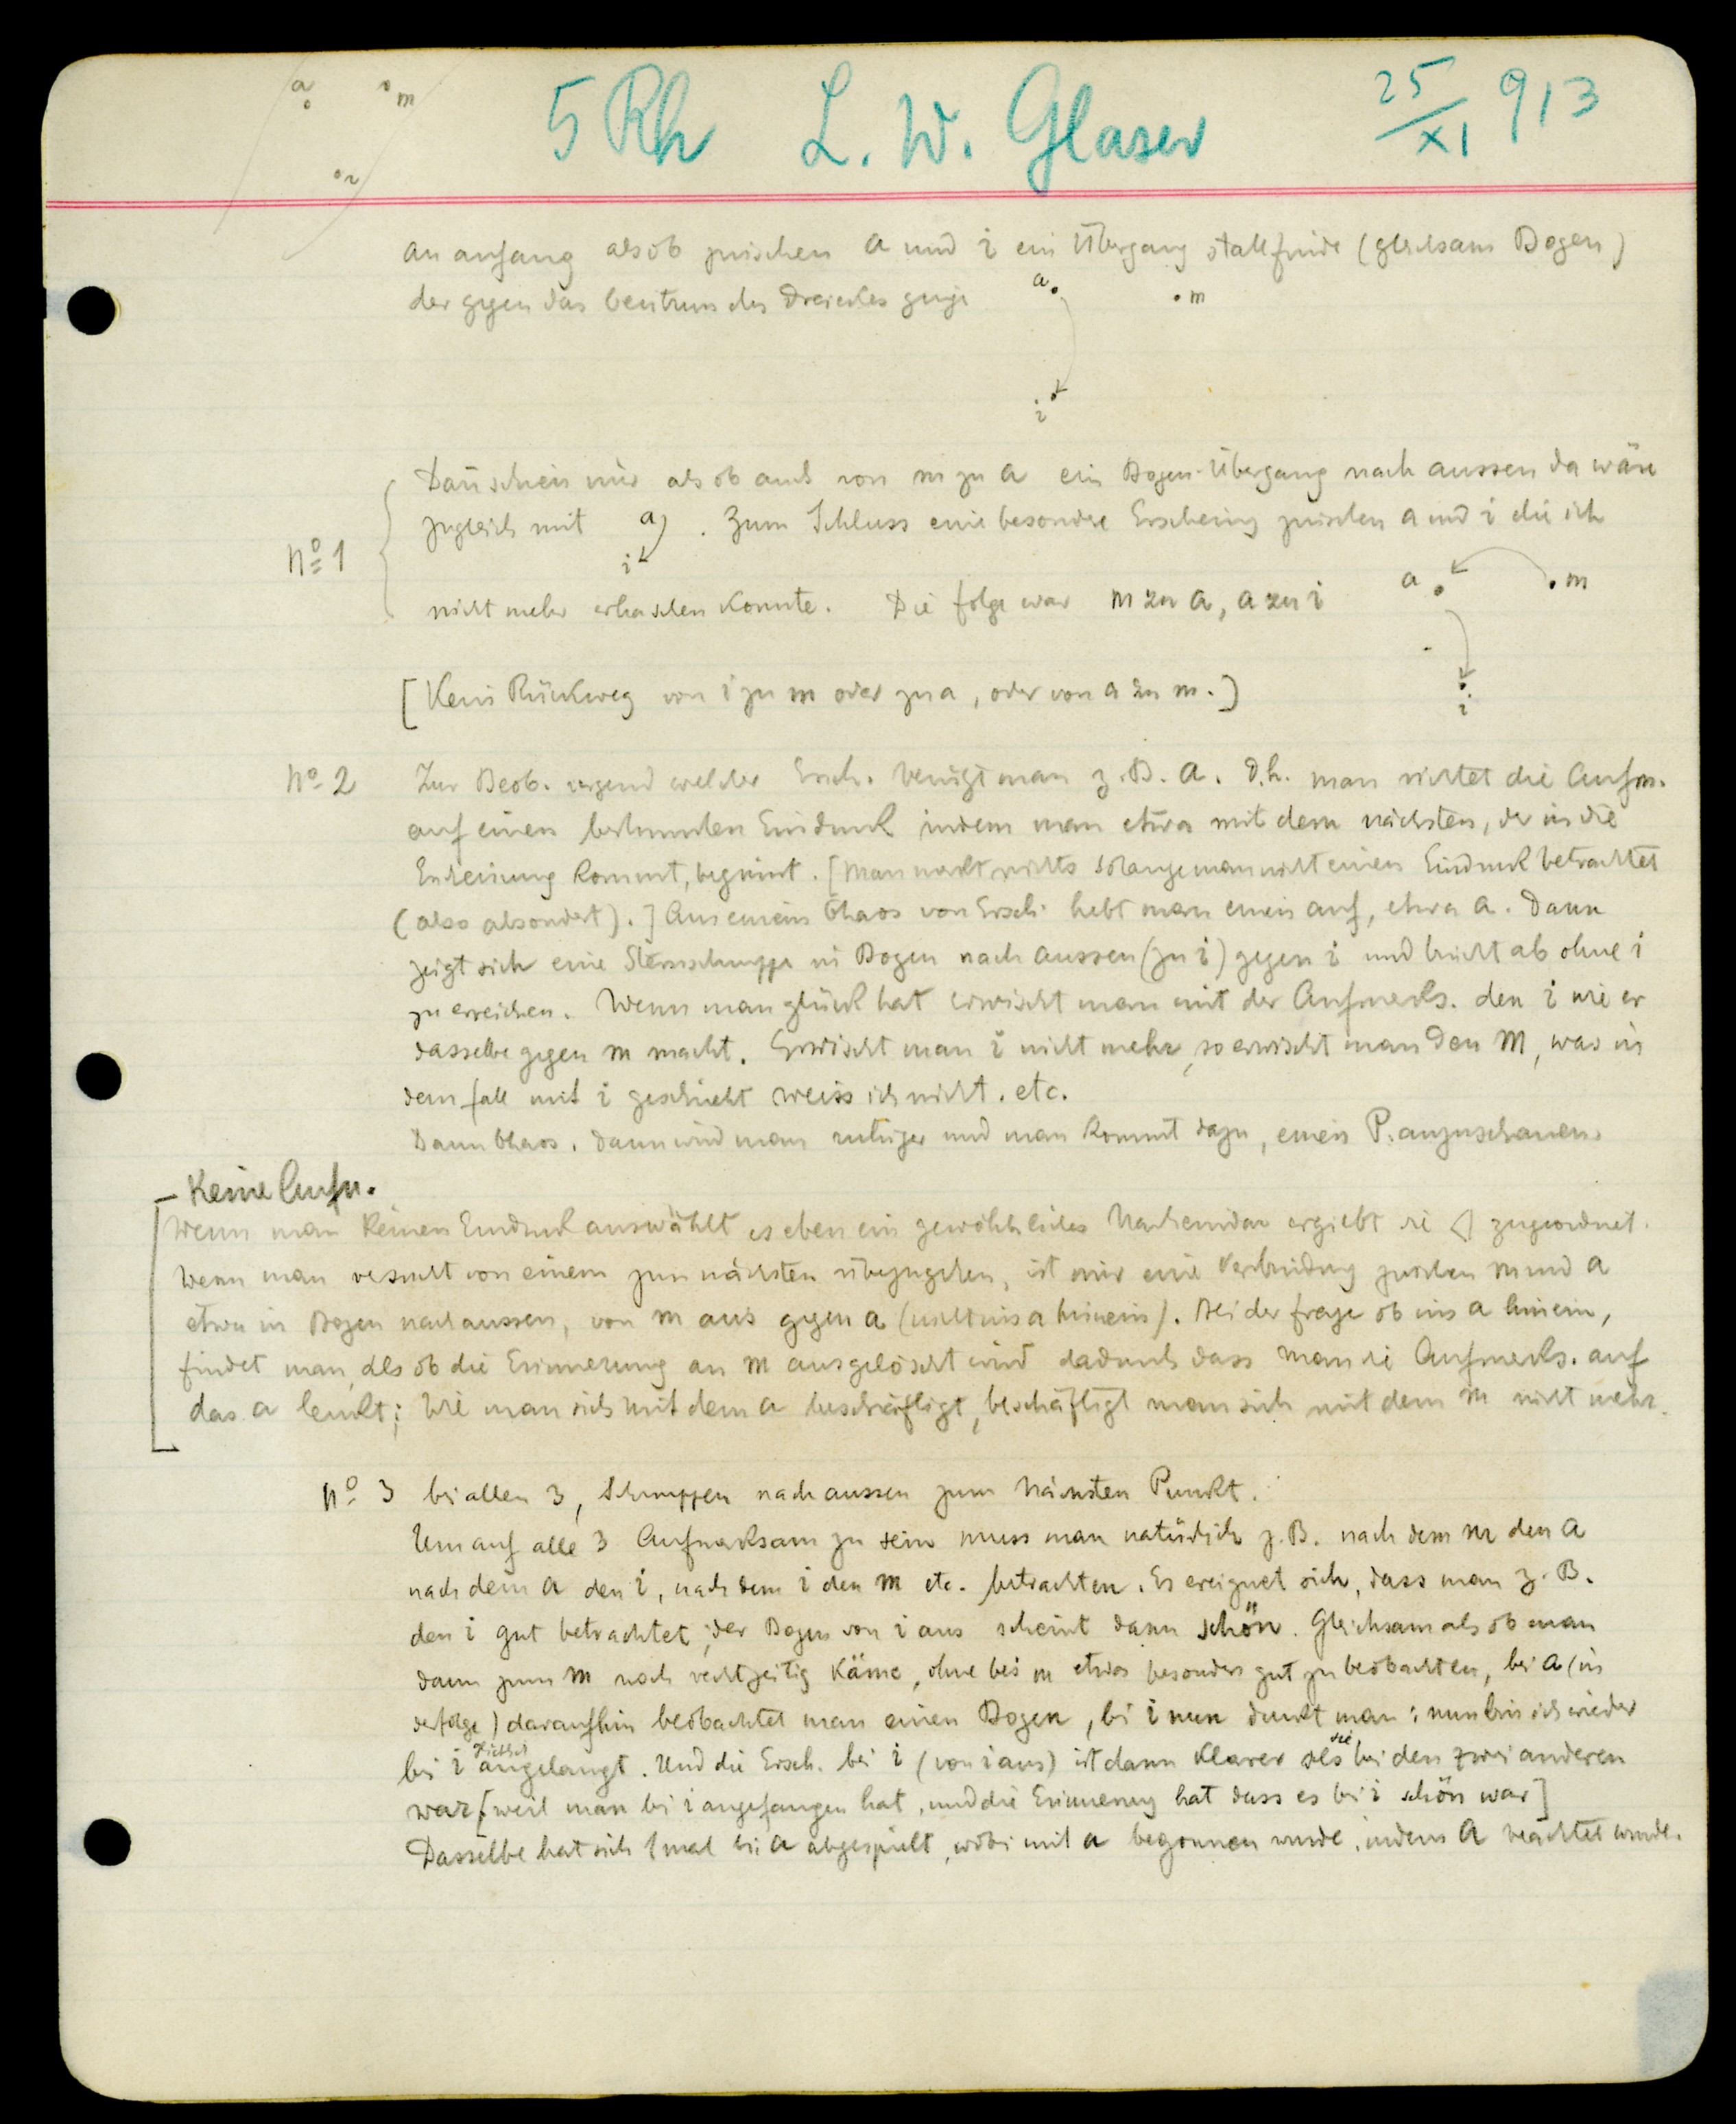 a m
i
5 Rh L. W. Glaser 25/XI 913
an anfang als ob zwischen a und i ein Übergang stattfinde (gleichsam Bogen)
der gegen das Centrum des Dreieckes ginge
a m
i
Dann schien mir als ob auch von m zu a ein Bogen-Übergang nach aussen da wäre
zugleich mit a . Zum Schluss eine besondere Erscheinung zwischen a und i die ich
i
Nº 1
nicht mehr erhaschen konnte. Die folge war m zu a, a zu i
a m
i
[Kein Rückweg von i zu m oder zu a, oder von a zu m.]
Nº 2 Zur Beob. irgend welcher Ersch. benützt man z.B. a. D.h. man richtet die Aufm.
auf einen bestimmten Eindruck indem man etwa mit dem nächsten, der in die
Erscheinung kommt, beginnt. [Man merkt nichts solange man nicht einen Eindruck betrachtet
(also absondert).] Aus einem Chaos von Ersch. hebt man einen auf, etwa a. Dann
zeigt sich eine Sternschnuppe in Bogen nach aussen (zu i) gegen i und bricht ab ohne i
zu erreichen. Wenn man glück hat erwischt man mit der Aufmerks. den i wie er
dasselbe gegen m macht. Erwischt man i nicht mehr, so erwischt man den m, was in
dem fall mit i geschieht weiss ich nicht. etc.
Dann Chaos. Dann wird man ruhiger und man kommt dazu, einen P. anzuschauen.
– Keine Aufm.
Wenn man keinen Eindruck auswählt es eben ein gewöhnliches Nacheinander ergiebt die zugeordnet.
Wenn man versucht von einem zum nächsten überzugehen, ist mir eine Verbindung zwischen m und a
etwa in Bogen nach aussen, von m aus gegen a (nicht ins a hinein). Bei der frage ob ins a hinein,
findet man, als ob die Erinnerung an m ausgelöscht wird dadurch dass man die Aufmerks. auf
das a lenkt; Wie man sich mit dem a beschäftigt, beschäftigt man sich mit dem m nicht mehr.
Nº 3 bei allen 3, Schnuppen nach aussen zum nächsten Punkt.
Um auf alle 3 Aufmerksam zu sein muss man natürlich z.B. nach dem m den a
nach dem a den i, nach dem i den m etc. betrachten. Es ereignet sich, dass man z.B.
den i gut betrachtet; der Bogen von i aus scheint dann schön. Gleichsam als ob man
dann zum m noch rechtzeitig käme, ohne bei m etwas besonders gut zu beobachten, bei a (in
der folge) daraufhin beobachtet man einen Bogen, bei i nun denkt man: nun bin ich wieder
bei i angelangt. Und die Ersch. bei i (von i aus) ist dann klarer als sie bei den zwei anderen
war [weil man bei i angefangen hat, und die Erinnerung hat dass es bei i schön war]
Dasselbe hat sich 1 mal bei a abgespielt, wobei mit a begonnen wurde, indem a beachtet wurde.